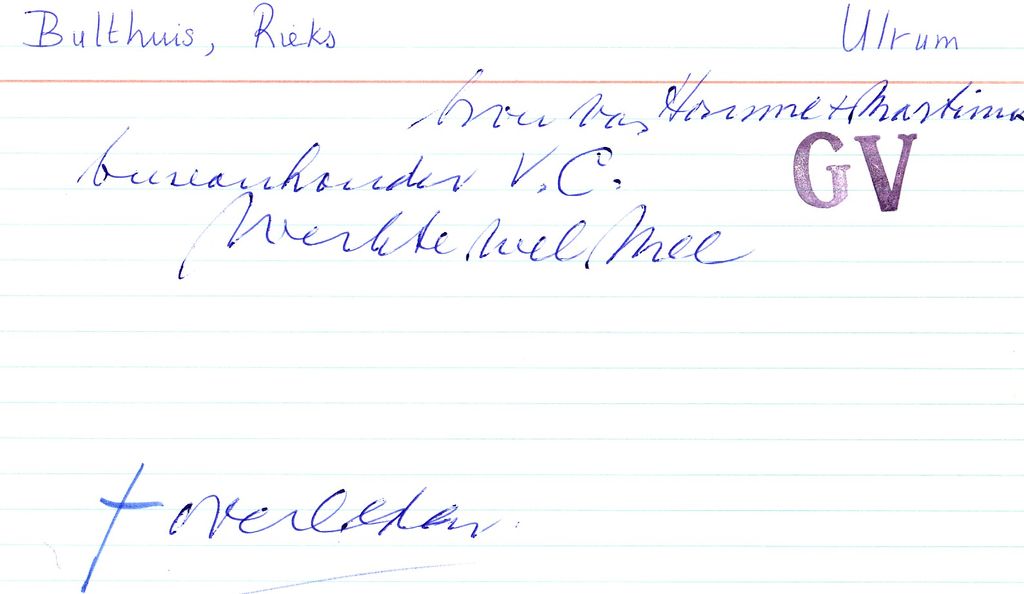 Bulthuis, Rieks Ulrum
bron van Homme + Martinus
GV
bureauhouder V.C.
Werkte wel mee
† overleden